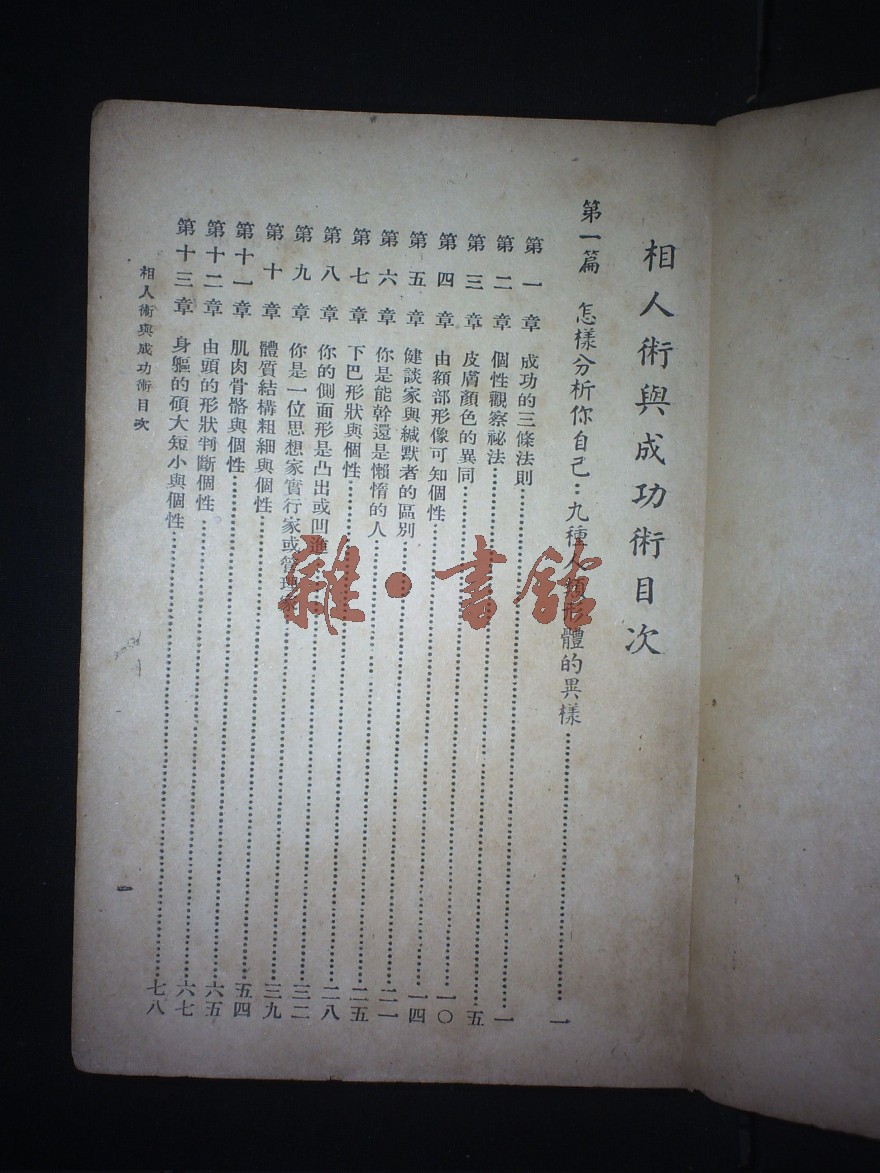 相人術與成功術目次
第一篇 怎樣分析你自己：九種人類形體的異樣……一
第一章 成功的三條法則……一
第二章 個性觀察祕法……五
第三章 皮膚顏色的異同……一〇
第四章 由額部形像可知個性……一四
第五章 健談家與緘默者的區別……二一
第六章 你是能幹還是懶惰的人……二五
第七章 下巴形狀與個性……二八
第八章 你的側面形是凸出或凹進……三二
第九章 你是一位思想家實行家或管理家……三九
第十章 體質結構粗細與個性……五四
第十一章 肌肉骨骼與個性……六五
第十二章 由頭的形狀判斷個性……六七
第十三章 身軀的碩大短小與個性……七八
相人術與成功術目次
一
雜·書館